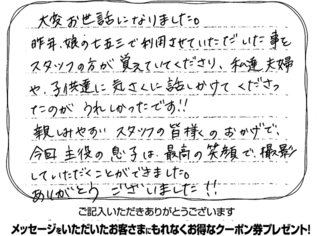 大変お世話になりました。
昨年、娘の七五三で利用させていただいた事を
スタッフの方が覚えていてくださり、私達夫婦
や、子供達に気さくに話しかけてくださっ
たのがうれしかったです!!
親しみやすいスタッフの皆様のおかげで、
今回主役の息子は、最高の笑顔で、撮影
していただくことができました。
ありがとうございました!!
ご記入いただきありがとうございます
メッセージをいただいたお客さまにもれなくお得なクーポン券プレゼント!